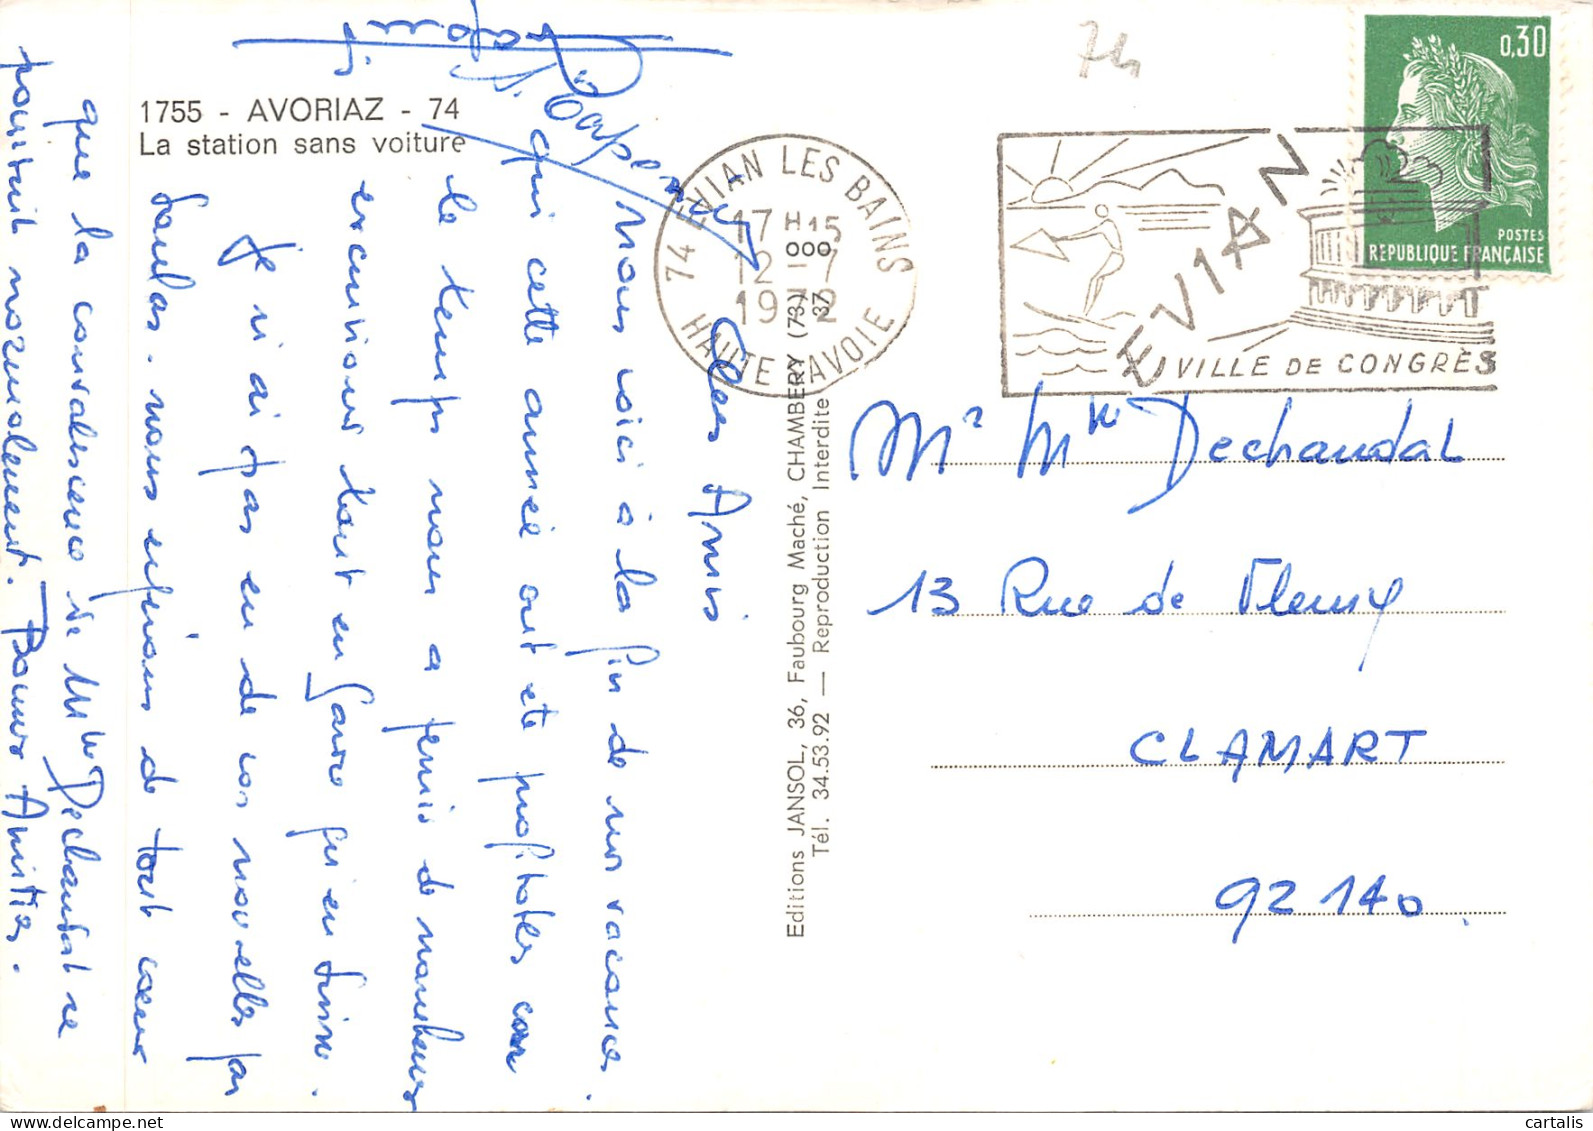 1755 - AVORIAZ - 74
La station sans voiture
Chers Amis
Nous voici à la fin de nos vacances.
qui cette année ont été profitables car
le temps nous a permis de nombreuses
excursions tant en France qu'en Suisse.
Je n'ai pas eu de vos nouvelles par
nous espérons de tout cœur
que la convalescence de Mme Dechandat se
poursuit normalement. Bonnes Amitiés.
Editions JANSOL, 36, Faubourg Maché, CHAMBERY (73)
Tél. 34.53.92 — Reproduction Interdite 37
74 EVIAN LES BAINS
17 H 15
000
12 - 7
1972
HAUTE SAVOIE
EVIAN
VILLE DE CONGRÈS
0,30
POSTES
RÉPUBLIQUE FRANÇAISE
74
Mr Mme Dechandat
13 Rue de Fleury
CLAMART
92140
cartalis